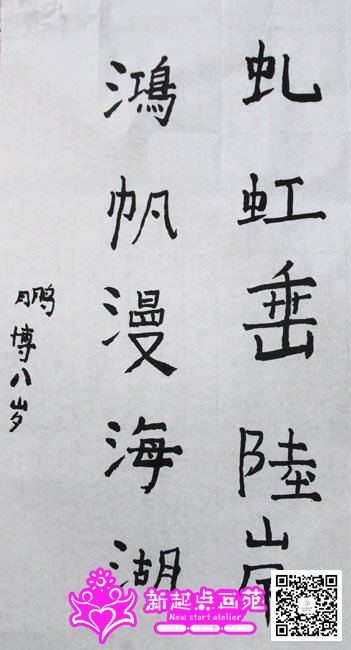 虬虹垂陸
鴻帆漫海湖
鹏博八岁
新起点画苑
New start atelier